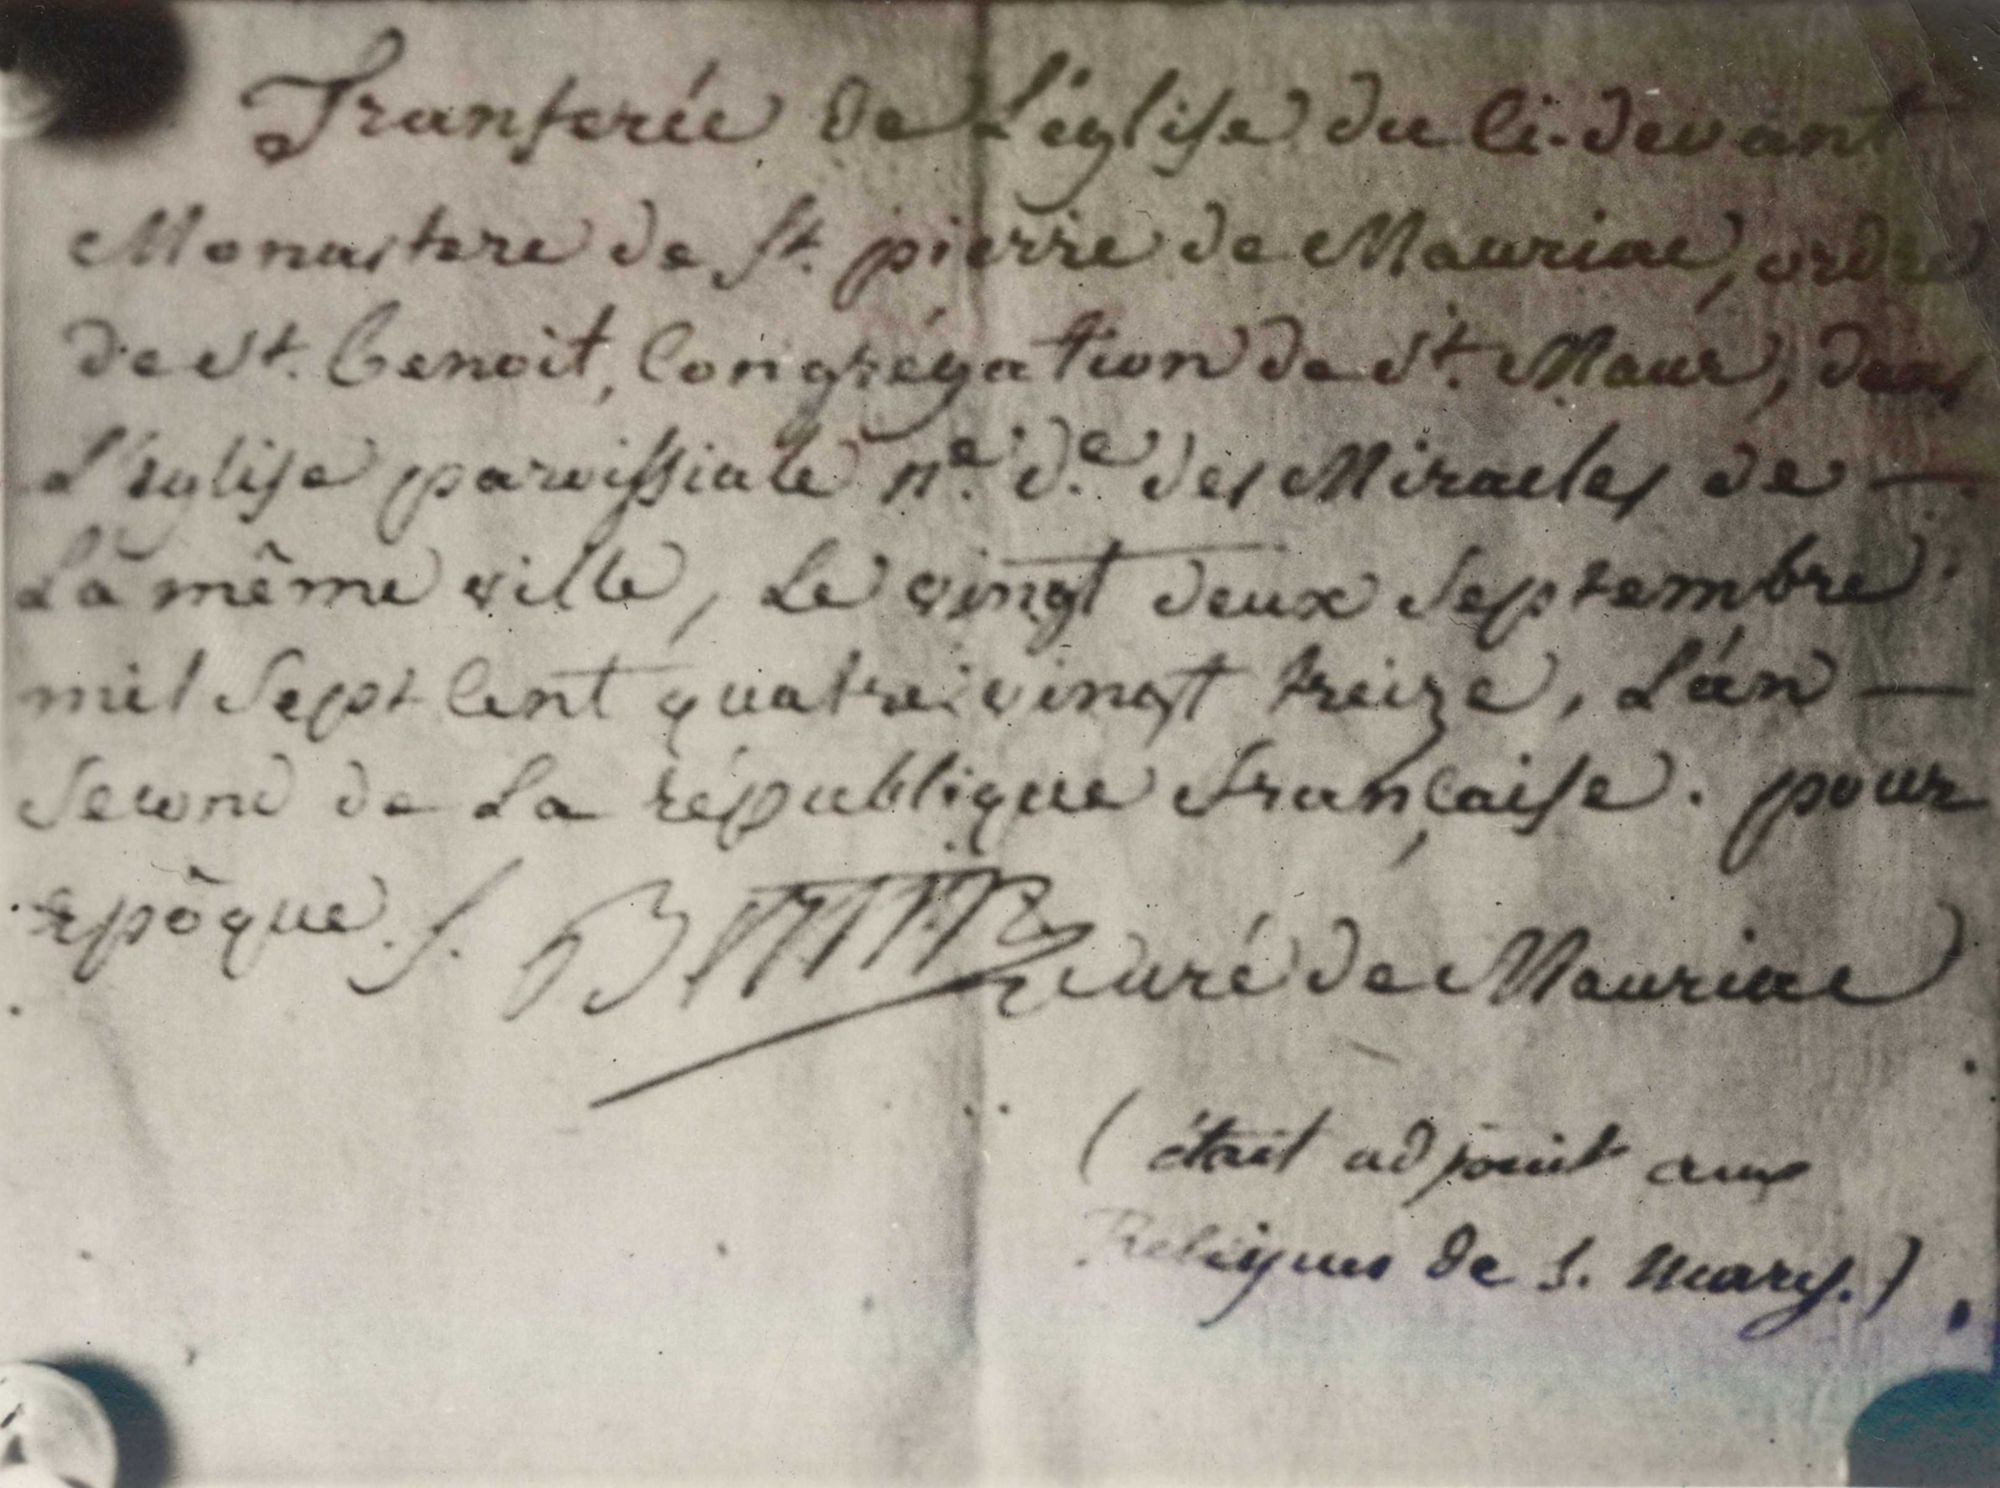 Tranferée de L'église du Ci-devant
Monastere de St. pierre de Mauriac, ordre
de St. Benoit, Congrégation de St. Maur, dans
L'église paroissiale n.e d.e des Miracles de —
La même ville, Le vingt deux Septembre
mil Sept Cent quatre vingt treize, L'án —
Second de La république française. pour
epôque. /.
curé de Mauriac
( était adjoint aux
Reliques de S. Mary. )